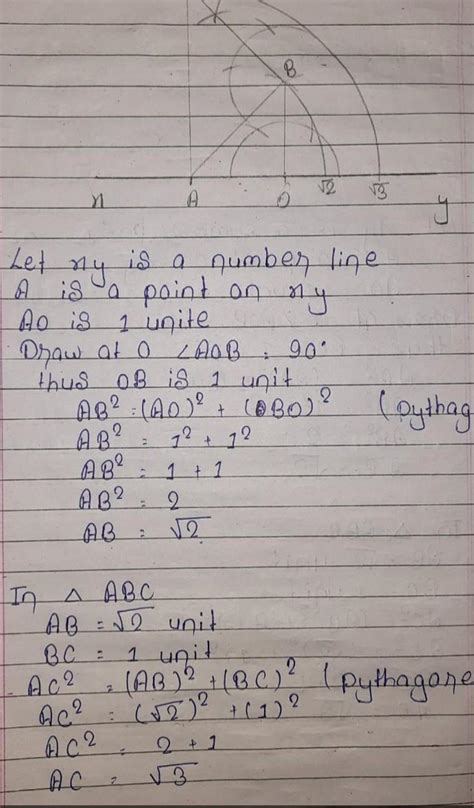 B
A O √2 √3
x y
Let xy is a number line
A is a point on xy
AO is 1 unite
Draw at O ∠AOB = 90°
thus OB is 1 unit
AB² = (AO)² + (OBO)² (pythag
AB² = 1² + 1²
AB² = 1 + 1
AB² = 2
AB = √2
In △ ABC
AB = √2 unit
BC = 1 unit
AC² = (AB)² + (BC)² (pythagane
AC² = (√2)² + (1)²
AC² = 2 + 1
AC = √3